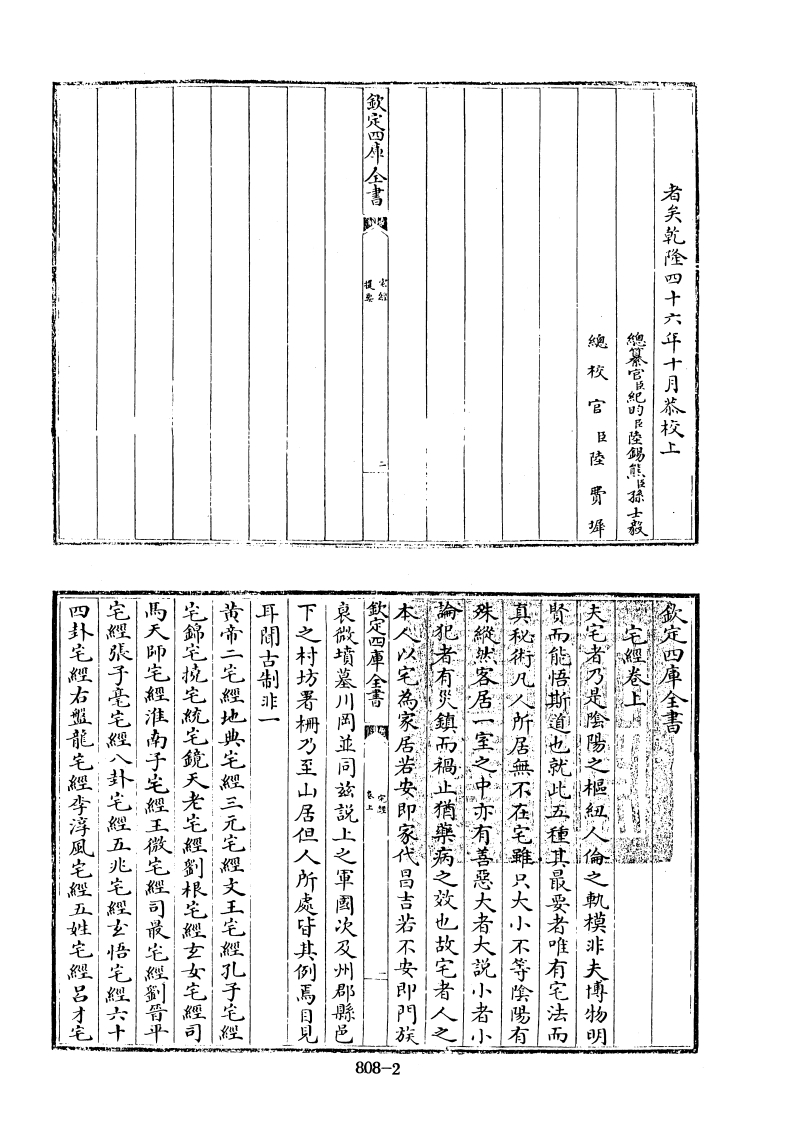 者矣乾隆四十六年十月恭校上
總纂官臣紀昀臣陸錫熊臣孫士毅
總校官臣陸費墀
欽定四庫全書
宅經
提要
二
欽定四庫全書
宅經卷上
夫宅者乃是陰陽之樞紐人倫之軌模非夫博物明
賢而能悟斯道也就此五種其最要者唯有宅法而
真秘術凡人所居無不在宅雖只大小不等陰陽有
殊縱然客居一室之中亦有善惡大者大說小者小
論犯者有災鎮而禍止猶藥病之效也故宅者人之
本人以宅為家居若安即家代昌吉若不安即門族
欽定四庫全書
宅經
卷上
二
衰微墳墓川岡並同兹說上之軍國次及州郡縣邑
下之村坊署柵乃至山居但人所處皆其例焉目見
耳聞古制非一
黄帝二宅經地典宅經三元宅經文王宅經孔子宅經
宅錦宅撓宅統宅鏡天老宅經劉根宅經玄女宅經司
馬天師宅經淮南子宅經王微宅經司最宅經劉晉平
宅經張子毫宅經八卦宅經五兆宅經玄悟宅經六十
四卦宅經右盤龍宅經李淳風宅經五姓宅經吕才宅
808-2